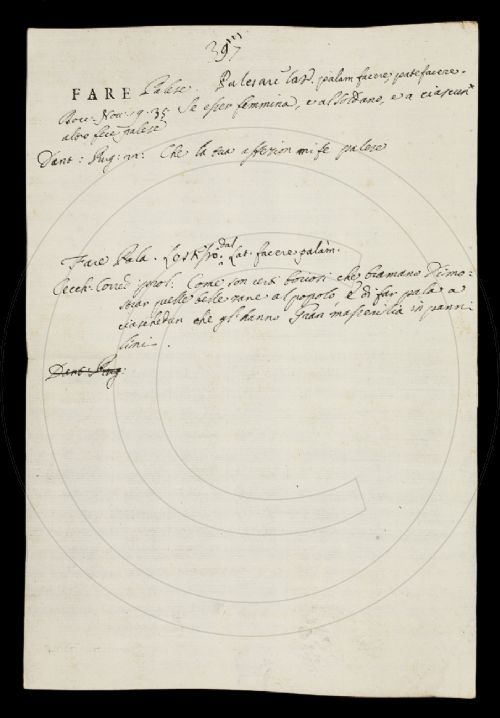 397
FARE Palese. Palesare lat. palam facere, patefacere.
Bocc: Nov: 19. 35. Se esser femmina, e al Soldano, e a ciascun
altro fece palese
Dant: Pug: 22: Che la tua affezion mi fe palese
Fare Pala. dal Lat. facere palàm.
Cecch: Prol: Come son certi che bramano dimo-
strar quelle belle zane al popolo, e di far pala a
ciaschedun che gl'hanno gran masserizia in panni
lini.
Dant: Pug: